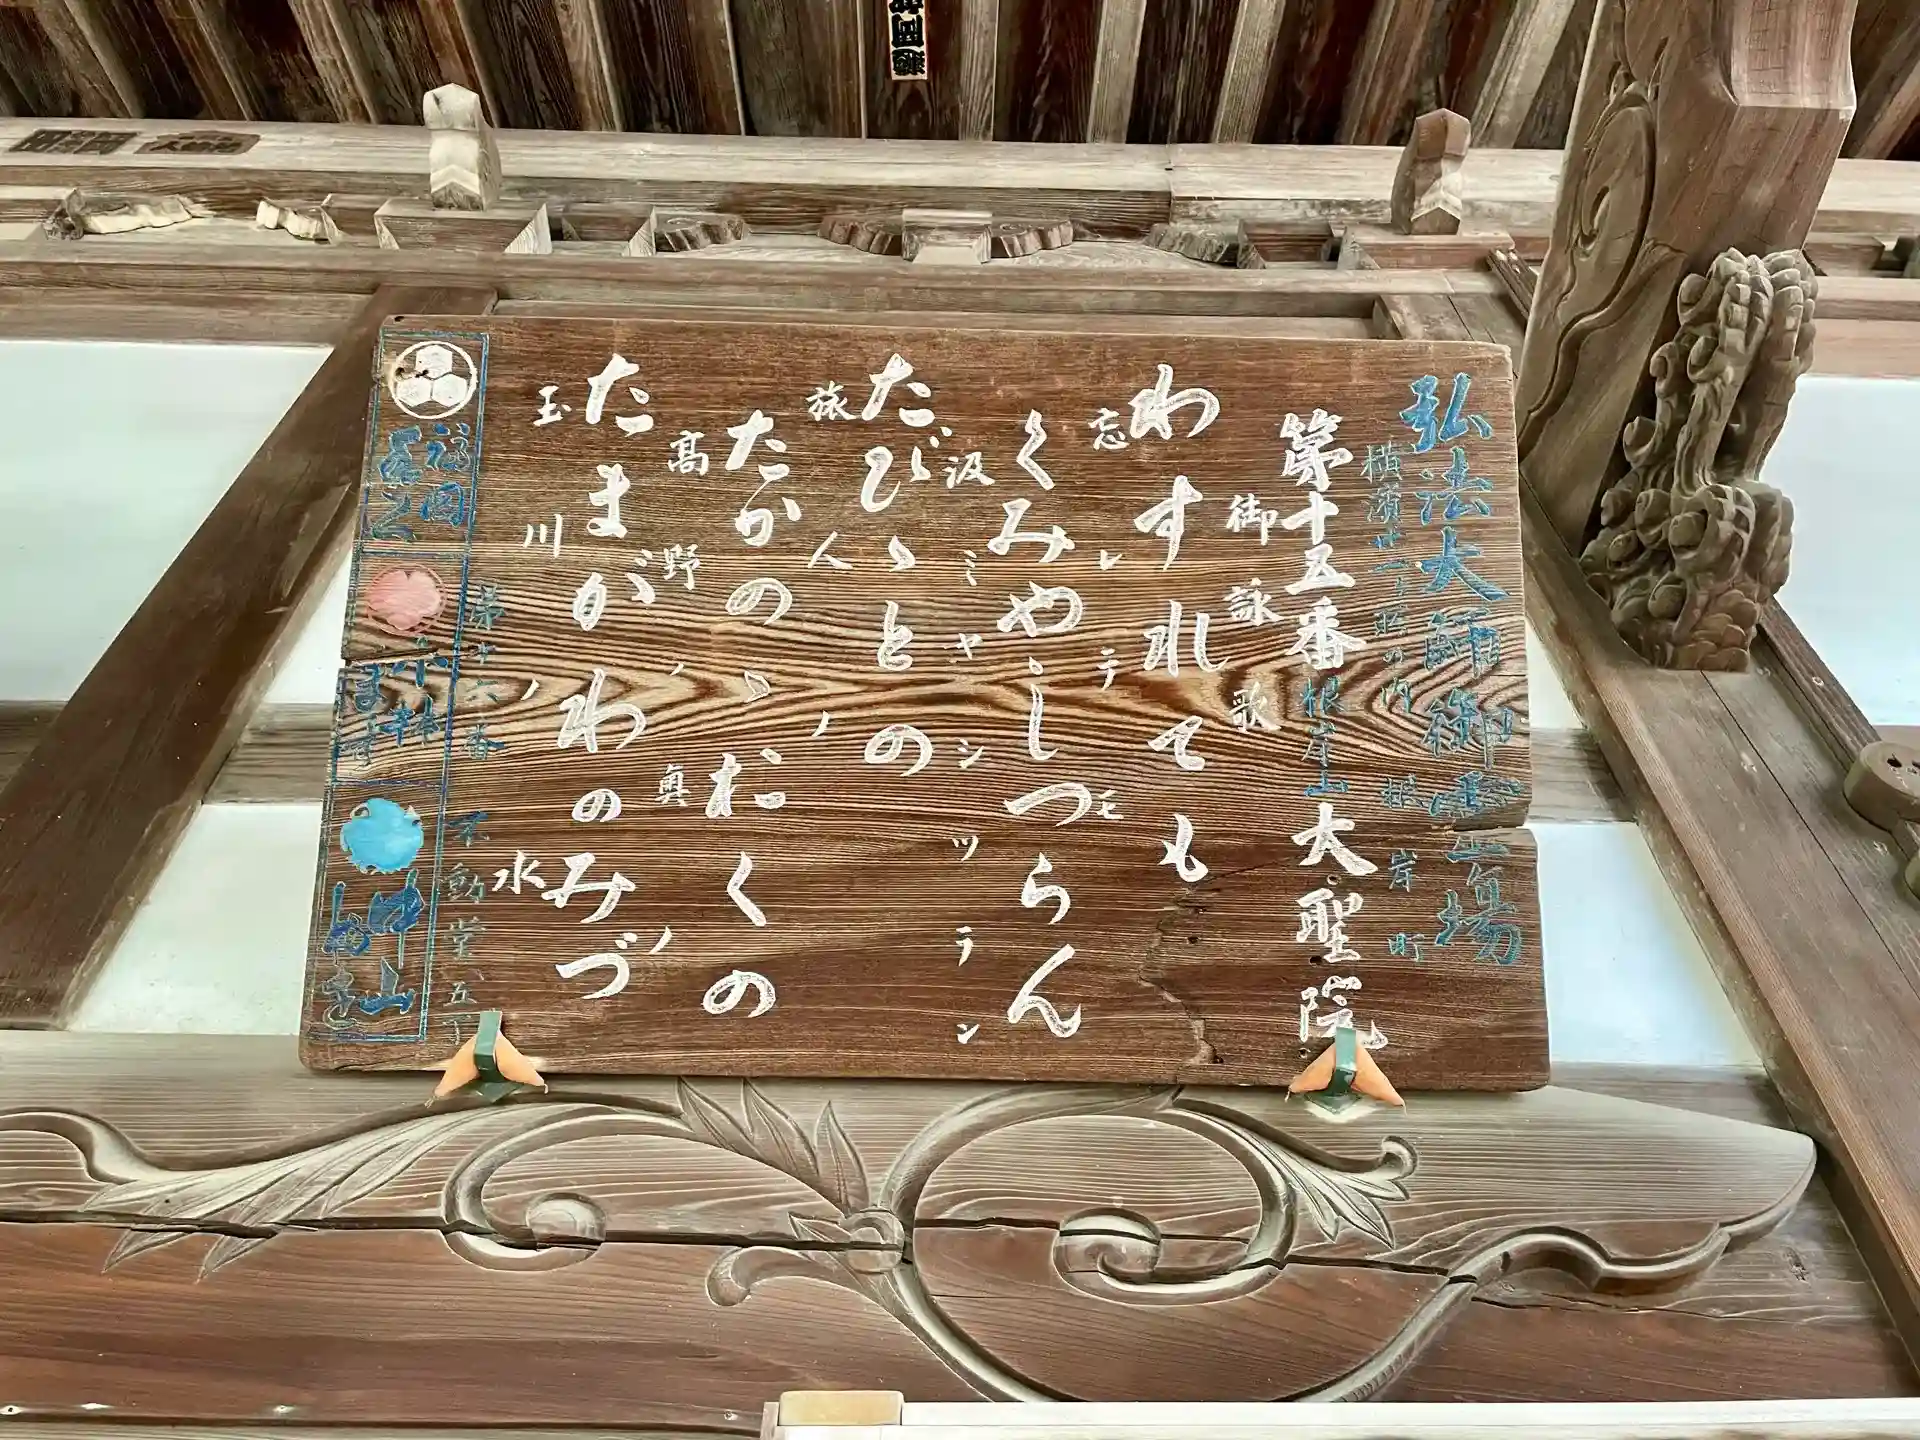 弘法大師御霊場
横濱廿一ヶ所の内 根岸町
第十五番 根岸山 大聖院
御詠歌
わすれても
忘レテモ
くみやしつらん
汲ミヤシツラン
たびゞとの
旅人ノ
たかのゝおくの
髙野ノ奥ノ
たまがわのみづ
玉川ノ水
第十六番 不動堂へ五丁
福岡
小林
ます
中山